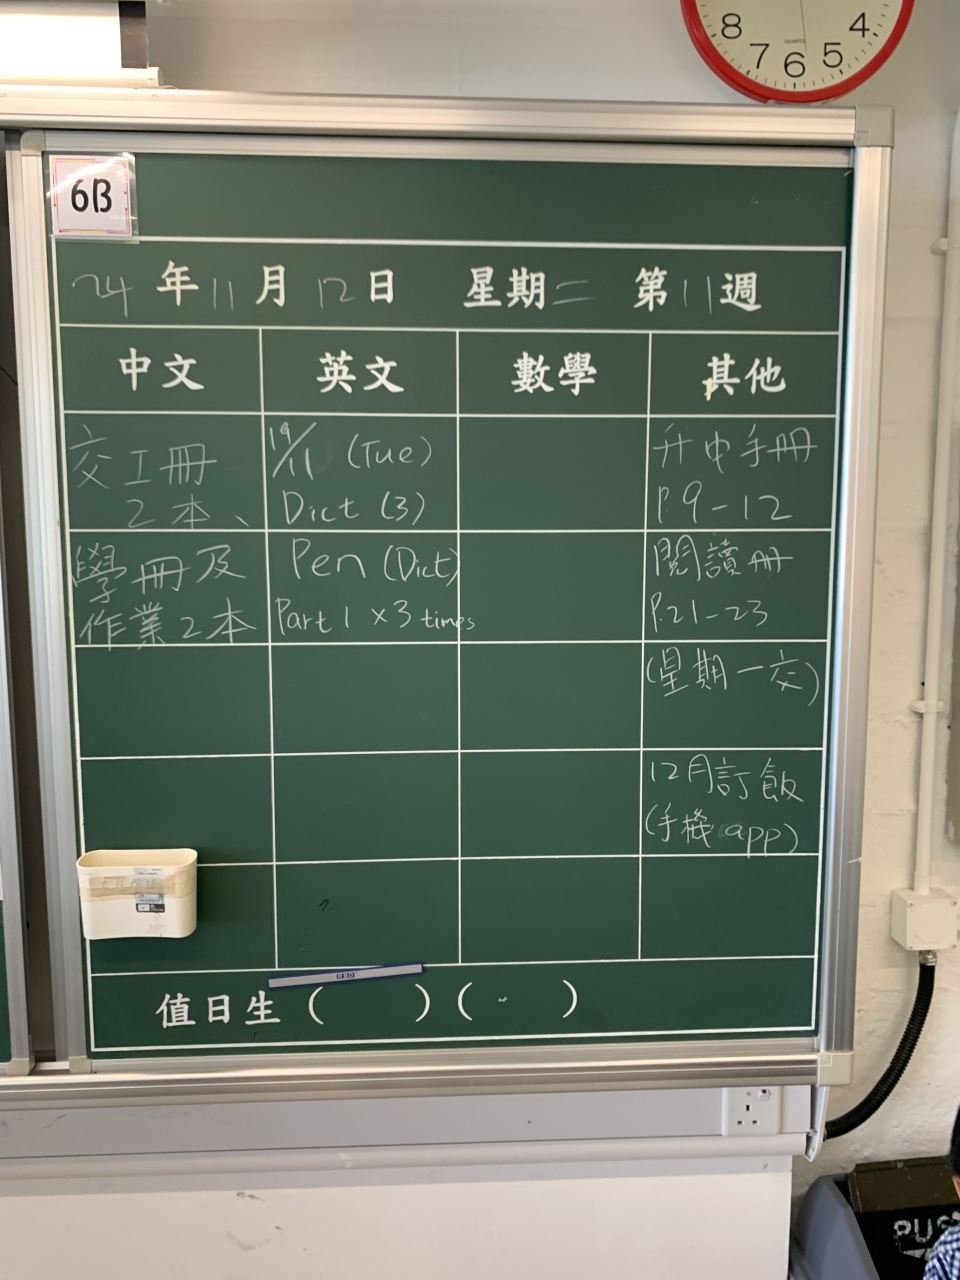 8 7 6 5 4
QUARTZ
6B
24年11月12日 星期二 第11週
中文 英文 數學 其他
交工冊
2本、
學冊及
作業2本
19/11 (Tue)
Dict (3)
Pen (Dict)
Part 1 x 3 times
升中手冊
P.9-12
閱讀冊
P.21-23
(星期一交)
12月訂飯
(手機 app)
值日生 ( ) ( )
PUS